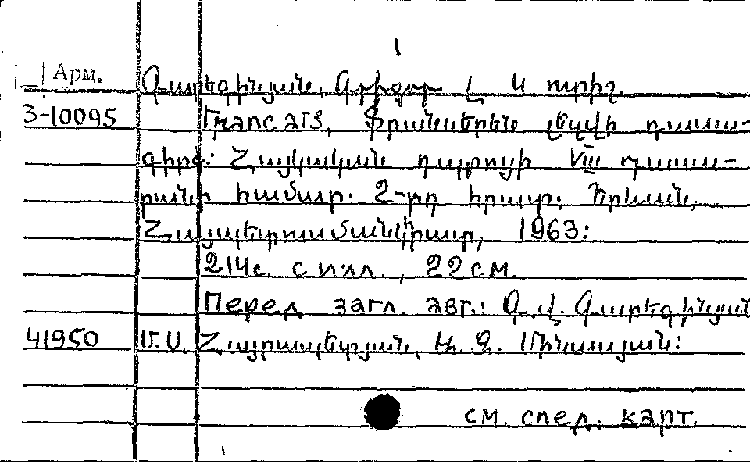 1
Арм. Գարեգինյան, Գրիգոր Լ և ուրիշ.
3-10095 Français, Ֆրանսերեն լեզվի դասա-
գիրք: Հայկական դպրոցի VIII դասա-
րանի համար. 2-րդ հրատ. Երևան,
Հայպետուսմանկհրատ, 1963:
214с. с илл., 22 см.
Перед загл. авт.: Գ. Լ. Գարեգինյան
41950 Մ. Ս. Հայրապետյան, Ա. Զ. Մինասյան:
см. след. карт.